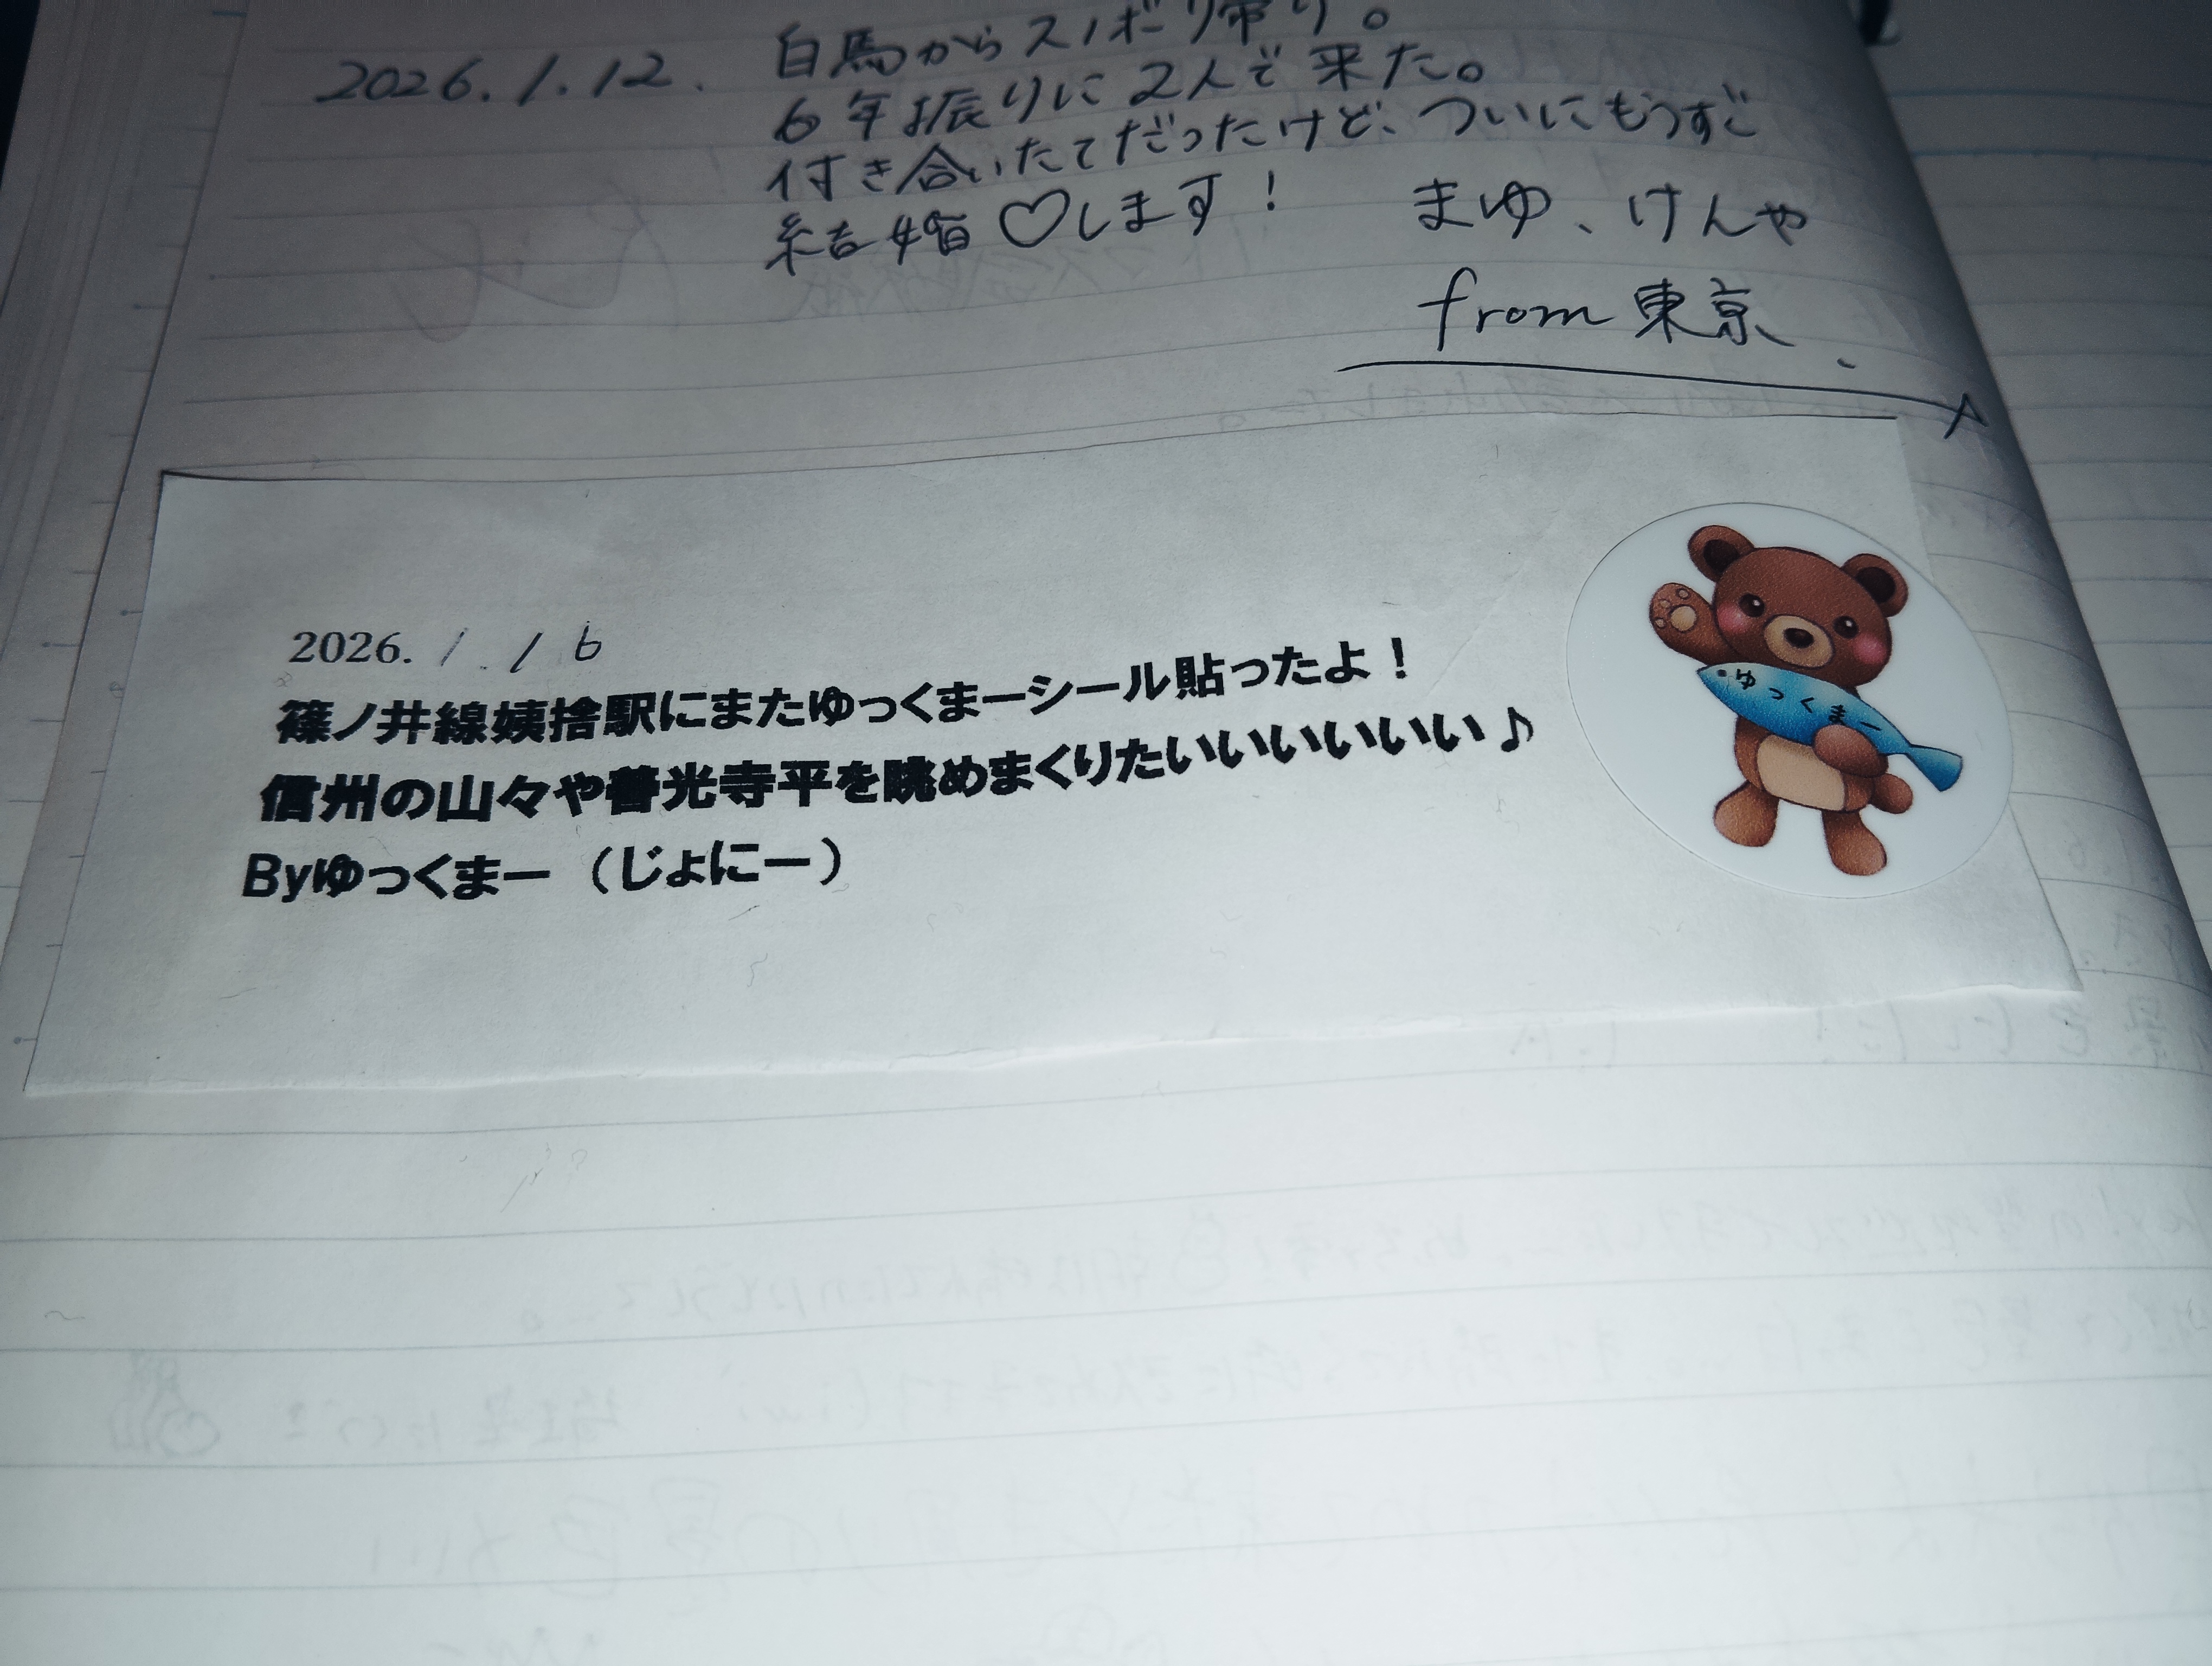 2026.1.12. 白馬からスノボー帰り。
6年振りに2人で来た。
付き合いたてだったけど、ついにもうすご
結婚♡します!
まゆ、けんや
from 東京.
2026. 1. 16
篠ノ井線姨捨駅にまたゆっくまーシール貼ったよ!
信州の山々や善光寺平を眺めまくりたいいいいいいい♪
Byゆっくまー(じょにー)
ゆっくまー